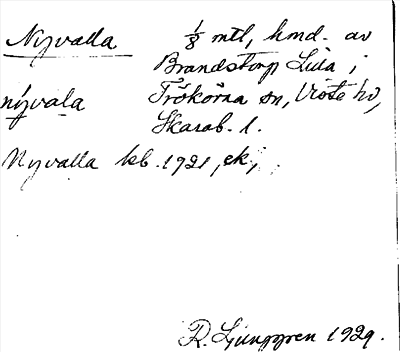 Nyvalla 1/8 mtl, hmd. av
Brandstorp Lilla i
nývala Trökörna sn, Viste hd,
Skarab. l.
Nyvalla kb. 1921, ek.,
R. Ljunggren 1929.